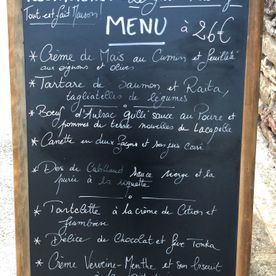 Tout est fait Maison
MENU à 26€
* Crème de Maïs au Cumin et
aux oignons et olives
* Tartare de Saumon et Raita,
tagliatelles de légumes
* Boeuf d'Aubrac grillé sauce au Poivre et
pommes de terre nouvelles de Lacapelle
* Canette en deux façons et son jus corsé
* Dos de Cabillaud sauce vierge et la
purée à la roquette
* Tartelette à la crème de Citron et
framboise
* Délice de Chocolat et fève Tonka
* Crème Verveine-Menthe et son biscuit